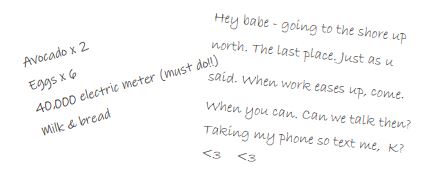 Avocado x 2
Eggs x 6
40.000 electric meter (must do!!)
Milk & bread
Hey babe - going to the shore up
north. The last place. Just as u
said. When work eases up, come.
When you can. Can we talk then?
Taking my phone so text me, K?
<3 <3